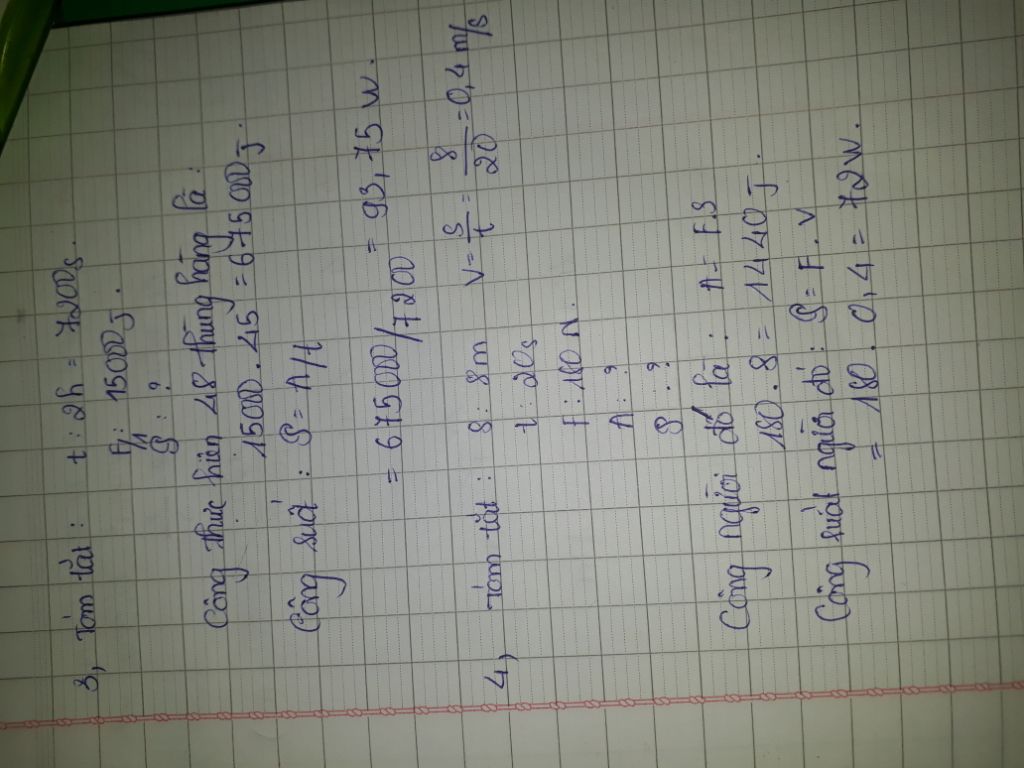 3, Tóm tắt : t : 2h = 7200s.
A1 : 15000J.
P : ?
Công thực hiện 48 thùng hàng là :
15000 . 45 = 675000J.
Công suất : P = A/t
= 675000/7200 = 93,75 W.
4, Tóm tắt : s : 8m v = s/t = 8/20 = 0,4 m/s
t : 20s
F : 180 N.
A : ?
P : ?
Công người đó là : A = F.S
180 . 8 = 1440 J.
Công suất người đó : P = F . V
= 180 . 0,4 = 72W.